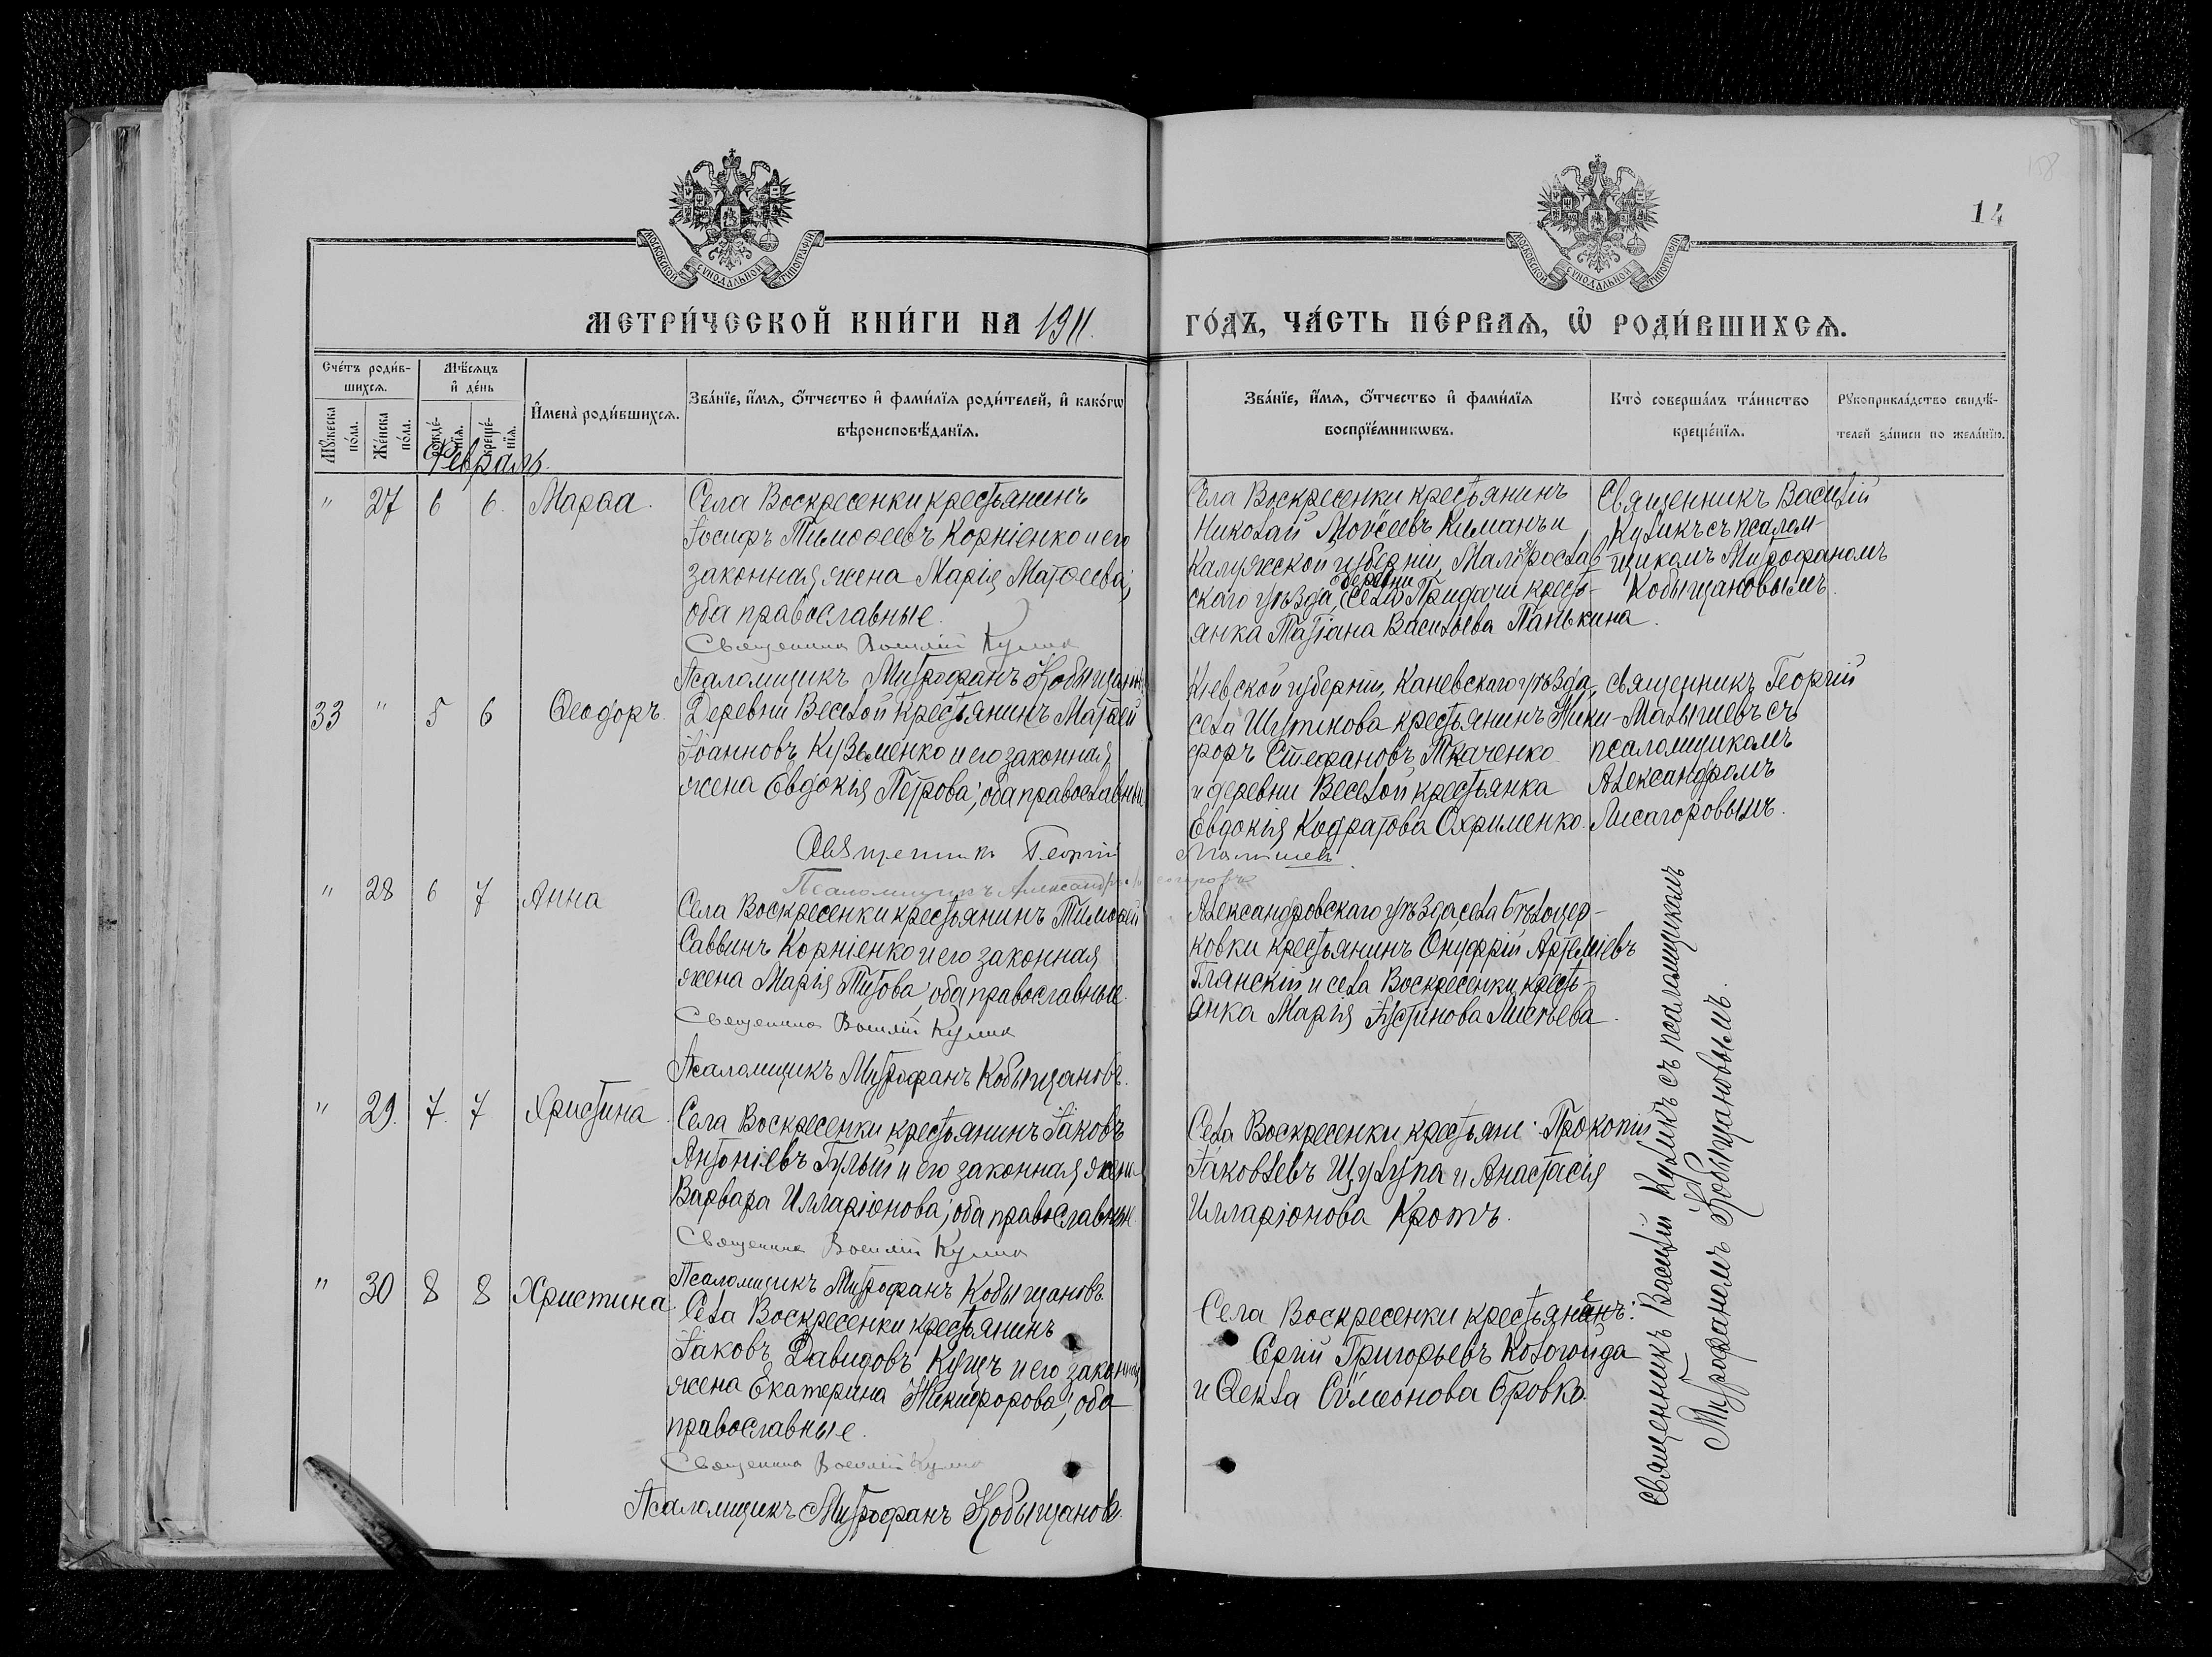 158
14
МОСКОВСКОЙ СѴНОДАЛЬНОЙ ТИПОГРАФІИ
МОСКОВСКОЙ СѴНОДАЛЬНОЙ ТИПОГРАФІИ
МЕТРИ́ЧЕСКОЙ КНИ́ГИ НА 1911.
ГО́ДЪ, ЧА́СТЬ ПЕ́РВАѦ, Ѽ РОДИ́ВШИХСѦ.
Сче́тъ роди́в-
шихсѧ.
Мꙋ́жеска по́ла.
Же́нска по́ла.
Мѣ́сѧцъ
и҆ де́нь
рожде́-
нїѧ.
креще́-
нїѧ.
И҆мена̀ роди́вшихсѧ.
Зва́нїе, и҆́мѧ, ѻ҆́тчество и҆ фами́лїѧ роди́телей, и҆ како́гѡ
вѣроисповѣ́данїѧ.
Зва́нїе, и҆́мѧ, ѻ҆́тчество и҆ фами́лїѧ
воспрїе́мникѡвъ.
Кто̀ соверша́лъ та́инство
креще́нїѧ.
Рꙋкоприкла́дство свидѣ́-
телей за́писи по жела́нїю.
Февраль.
" 27 6 6. Марѳа.
Села Воскресенки крестьянинъ
Іосифъ Тимоѳеевъ Корніенко и его
законная жена Марія Матѳеева;
оба православные.
Священникъ Василій Куликъ
Псаломщикъ Митрофанъ Кобыщановъ
Села Воскресенки крестьянинъ
Николай Моѵсеевъ Киманъ и
Калужской губерніи, Малоярослав-
скаго уѣзда, села деревни Придачи кресть-
янка Татіана Васильева Панькина.
Священникъ Василій
Куликъ съ псалом-
щикомъ Митрофаномъ
Кобыщановымъ.
33 " 5 6 Ѳеодоръ.
Деревни Веселой крестьянинъ Матѳей
Іоанновъ Кузьменко и его законная
жена Евдокія Петрова; оба православные.
Священникъ Георгій Малышевъ
Псаломщикъ Александръ
Кіевской губерніи, Каневскаго уѣзда,
села Шутикова крестьянинъ Ники-
форъ Стефановъ Ткаченко
и деревни Веселой крестьянка
Евдокія Кодратова Охрименко.
священникъ Георгій
Малышевъ съ
псаломщикомъ
Александромъ
Лисагоровымъ.
" 28 6 7 Анна
Села Воскресенки крестьянинъ Тимоѳей
Саввинъ Корніенко и его законная
жена Марія Титова; оба православные.
Священникъ Василій Куликъ
Псаломщикъ Митрофанъ Кобыщановъ.
Александровскаго уѣзда, села Бѣлоцер-
ковки крестьянинъ Онуфрій Артеміевъ
Глянскій и села Воскресенки кресть-
янка Марія Іустинова
" 29. 7. 7 Христина.
Села Воскресенки крестьянинъ Іаковъ
Антоніевъ Гулый и его законная жена
Варвара Илларіонова; оба православные.
Священникъ Василій Куликъ
Псаломщикъ Митрофанъ Кобыщановъ.
Села Воскресенки крестьяне: Прокопій
Іаковлевъ Щулупа и Анастасія
Илларіонова Кротъ.
" 30 8 8 Христина.
Села Воскресенки крестьянинъ
Іаковъ Давидовъ Кущъ и его законная
жена Екатерина Никифорова; оба
православные.
Священникъ Василій Куликъ
Псаломщикъ Митрофанъ Кобыщановъ.
Села Воскресенки крестьяне:
Ергій Григорьевъ Кологойда
и Ѳекла Сѵмеонова Бровко.
Священникъ Василій Куликъ съ псаломщикомъ
Митрофаномъ Кобыщановымъ.